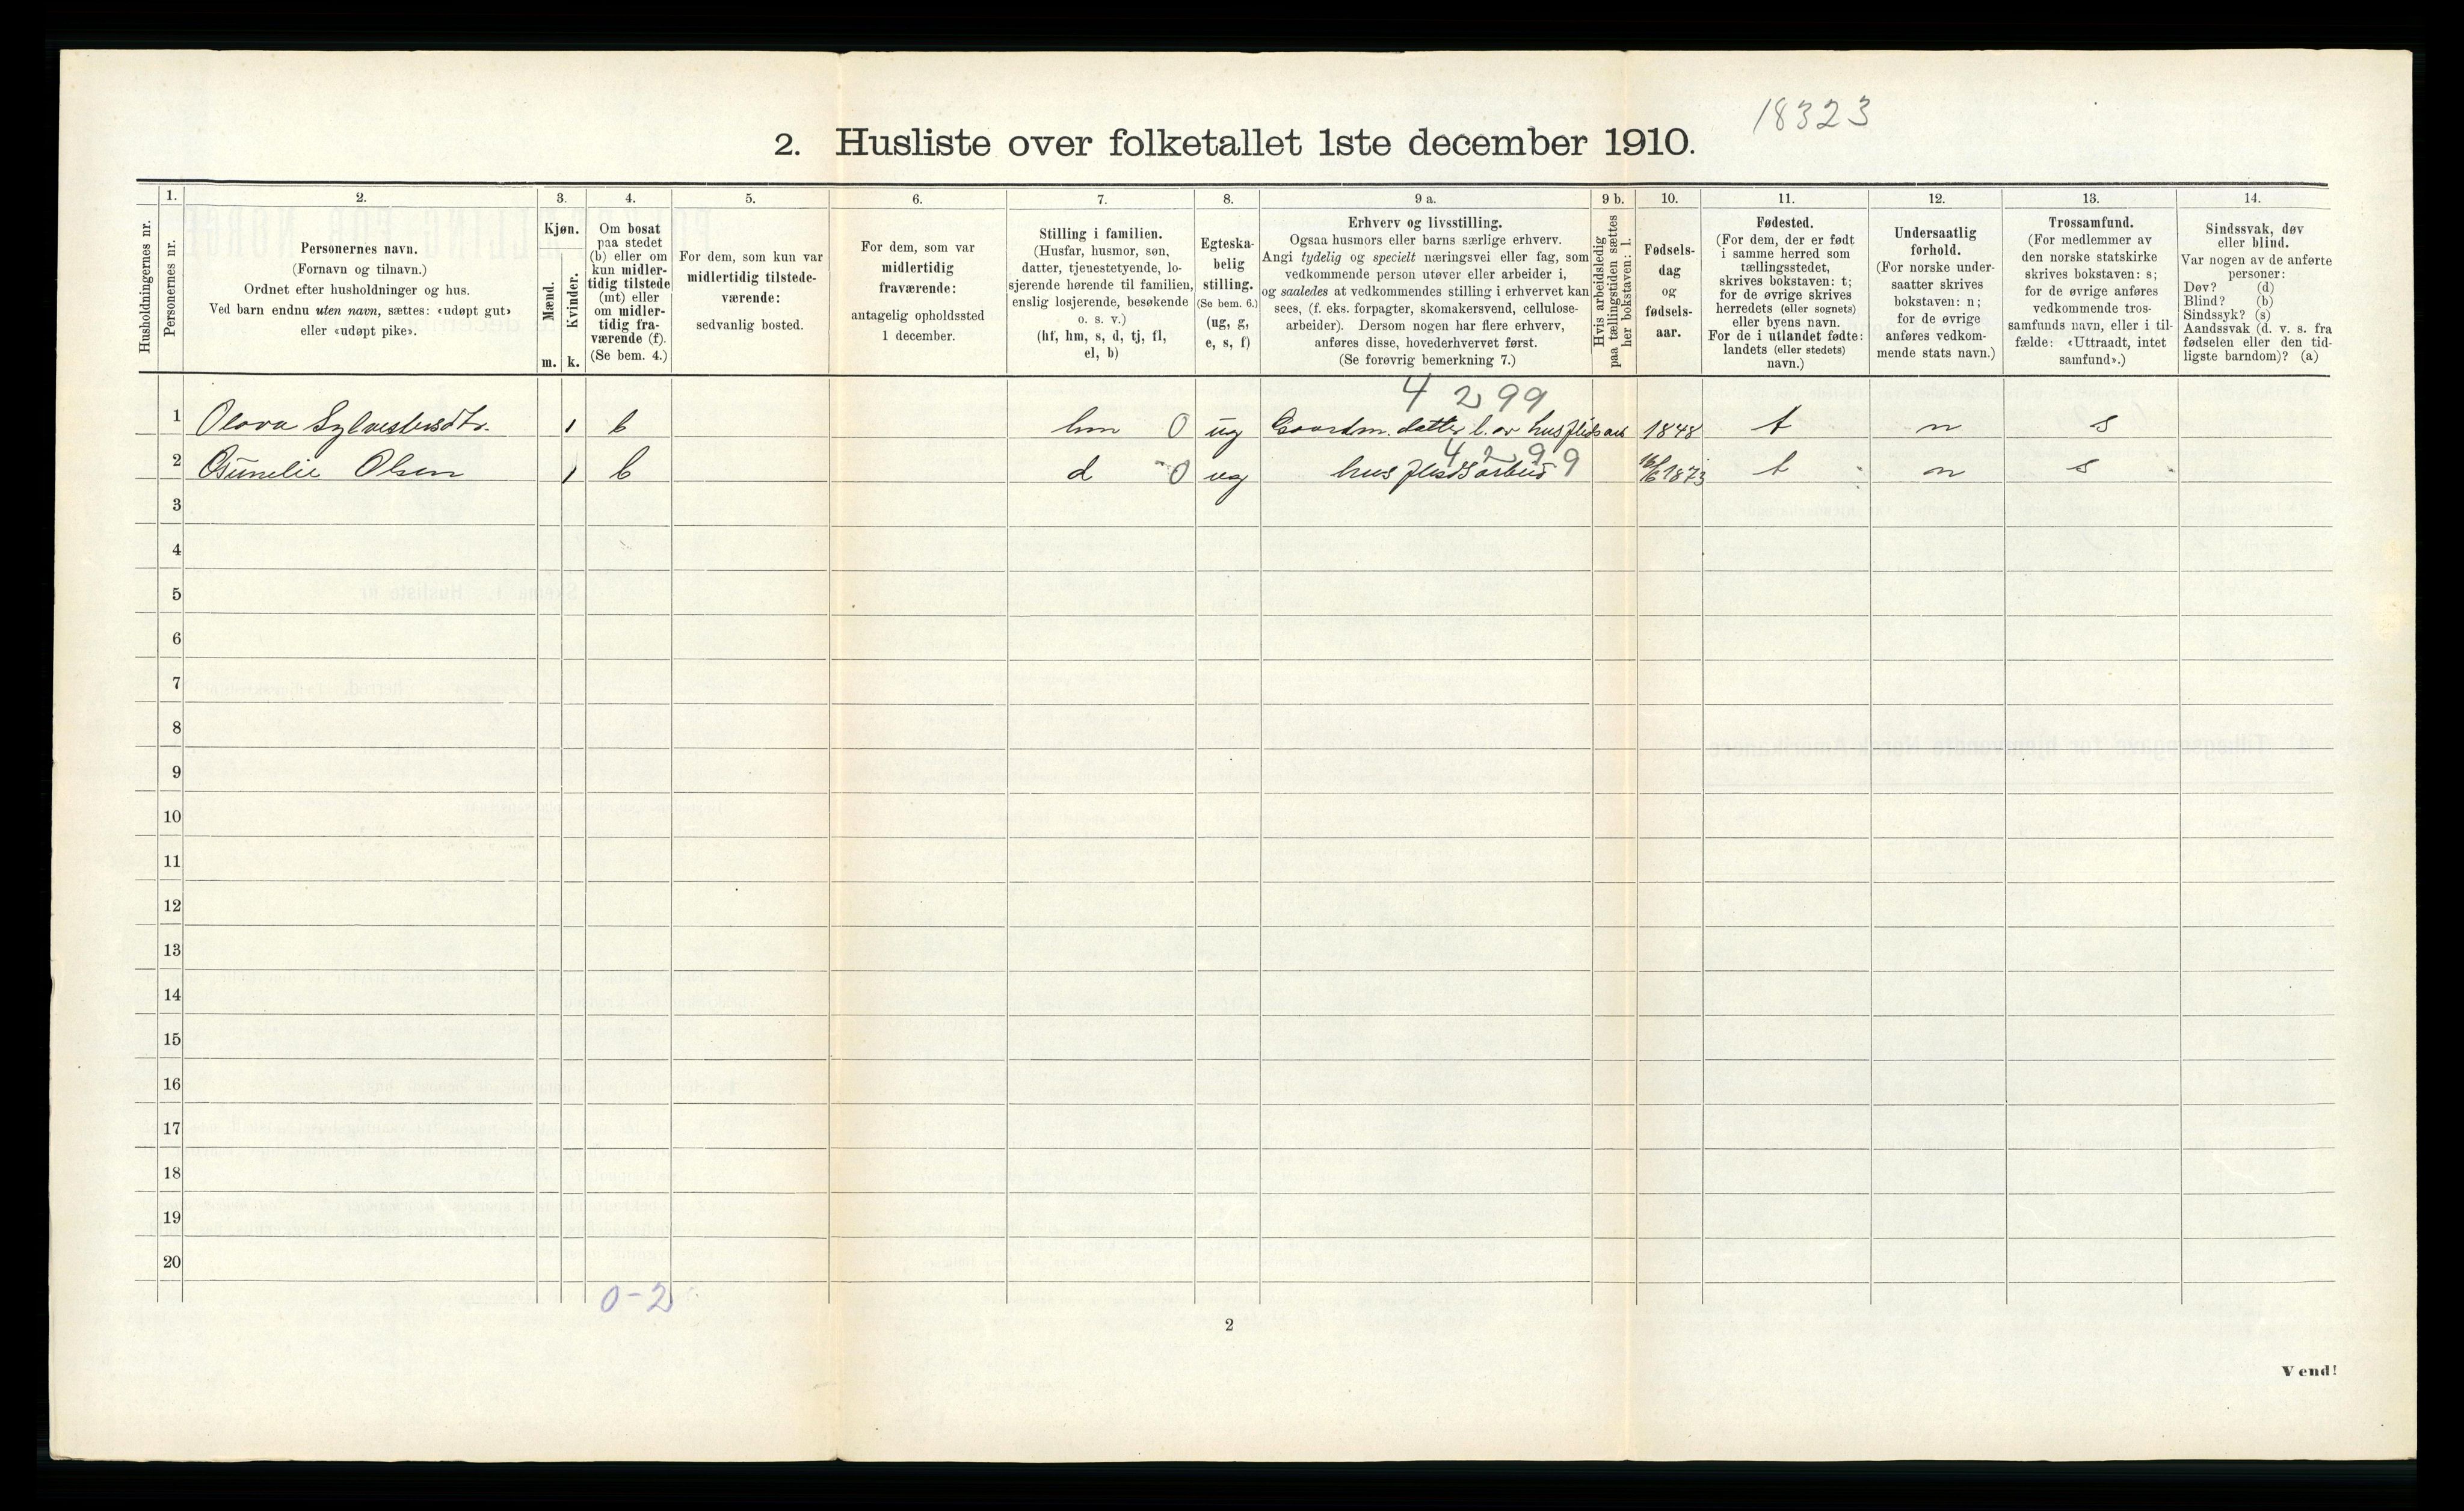 18323
2. Husliste over folketallet 1ste december 1910.
Husholdningernes nr.
1.
Personernes nr.
2.
Personernes navn.
(Fornavn og tilnavn.)
Ordnet efter husholdninger og hus.
Ved barn endnu uten navn, sættes: «udøpt gut»
eller «udøpt pike».
3.
Kjøn.
Mænd.
m.
Kvinder.
k.
4.
Om bosat
paa stedet
(b) eller om
kun midler-
tidig tilstede
(mt) eller
om midler-
tidig fra-
værende (f).
(Se bem. 4.)
5.
For dem, som kun var
midlertidig tilstede-
værende:
sedvanlig bosted.
6.
For dem, som var
midlertidig
fraværende:
antagelig opholdssted
1 december.
7.
Stilling i familien.
(Husfar, husmor, søn,
datter, tjenestetyende, lo-
sjerende hørende til familien,
enslig losjerende, besøkende
o. s. v.)
(hf, hm, s, d, tj, fl,
el, b)
8.
Egteska-
belig
stilling.
(Se bem. 6.)
(ug, g,
e, s, f)
9 a.
Erhverv og livsstilling.
Ogsaa husmors eller barns særlige erhverv.
Angi tydelig og specielt næringsvei eller fag, som
vedkommende person utøver eller arbeider i,
og saaledes at vedkommendes stilling i erhvervet kan
sees, (f. eks. forpagter, skomakersvend, cellulose-
arbeider). Dersom nogen har flere erhverv,
anføres disse, hovederhvervet først.
(Se forøvrig bemerkning 7.)
9 b.
Hvis arbeidsledig
paa tællingstiden sættes
her bokstaven: l.
10.
Fødsels-
dag
og
fødsels-
aar.
11.
Fødested.
(For dem, der er født
i samme herred som
tællingsstedet,
skrives bokstaven: t;
for de øvrige skrives
herredets (eller sognets)
eller byens navn.
For de i utlandet fødte:
landets (eller stedets)
navn.)
12.
Undersaatlig
forhold.
(For norske under-
saatter skrives
bokstaven: n;
for de øvrige
anføres vedkom-
mende stats navn.)
13.
Trossamfund.
(For medlemmer av
den norske statskirke
skrives bokstaven: s;
for de øvrige anføres
vedkommende tros-
samfunds navn, eller i til-
fælde: «Uttraadt, intet
samfund».)
14.
Sindssvak, døv
eller blind.
Var nogen av de anførte
personer:
Døv? (d)
Blind? (b)
Sindssyk? (s)
Aandssvak (d. v. s. fra
fødselen eller den tid-
ligste barndom)? (a)
4 2 99
1 Olova Sylvestersdtr. 1 b hm 0 ug Gaardm. datter l. av husflids arb 1848 t n s
4 2 9 9
2 Gunelie Olsen 1 b d 0 ug husflids arbeid 16/6 1873 t n s
3
4
5
6
7
8
9
10
11
12
13
14
15
16
17
18
19
20
0-2
2
Vend!